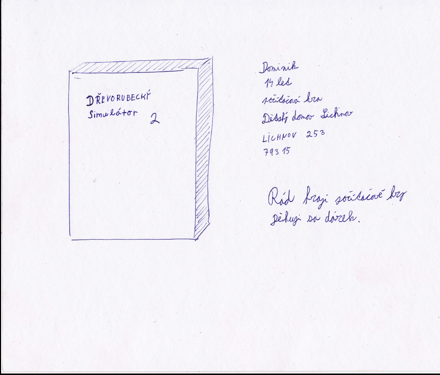 DŘEVORUBECKÝ
Simulátor
2
Dominik
14 let
počítačová hra
Dětský domov Lichnov
LICHNOV 253
793 15
Rád hraji počítačové hry
děkuji za dárek.